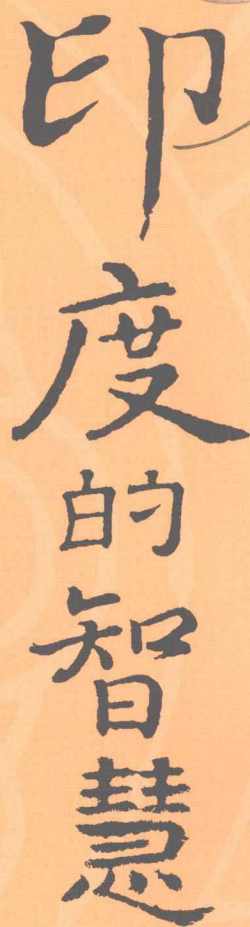 印度的智慧